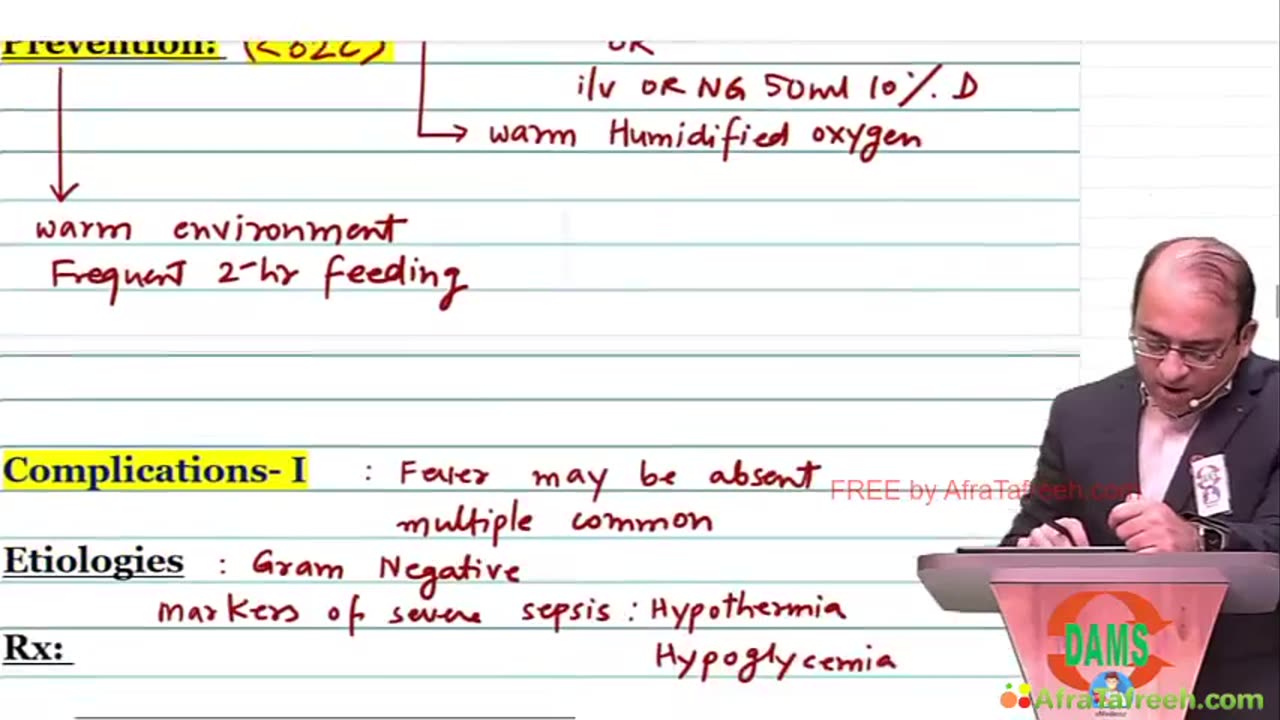 Prevention:
OR
i/v OR NG 50ml 10%. D
warm Humidified oxygen
warm environment
Frequent 2-hr feeding
Complications- I : Fever may be absent
multiple common
FREE by AfraTafreeh.com
Etiologies : Gram Negative
markers of severe sepsis : Hypothermia
Rx:
Hypoglycemia
DAMS
AfraTafreeh.com